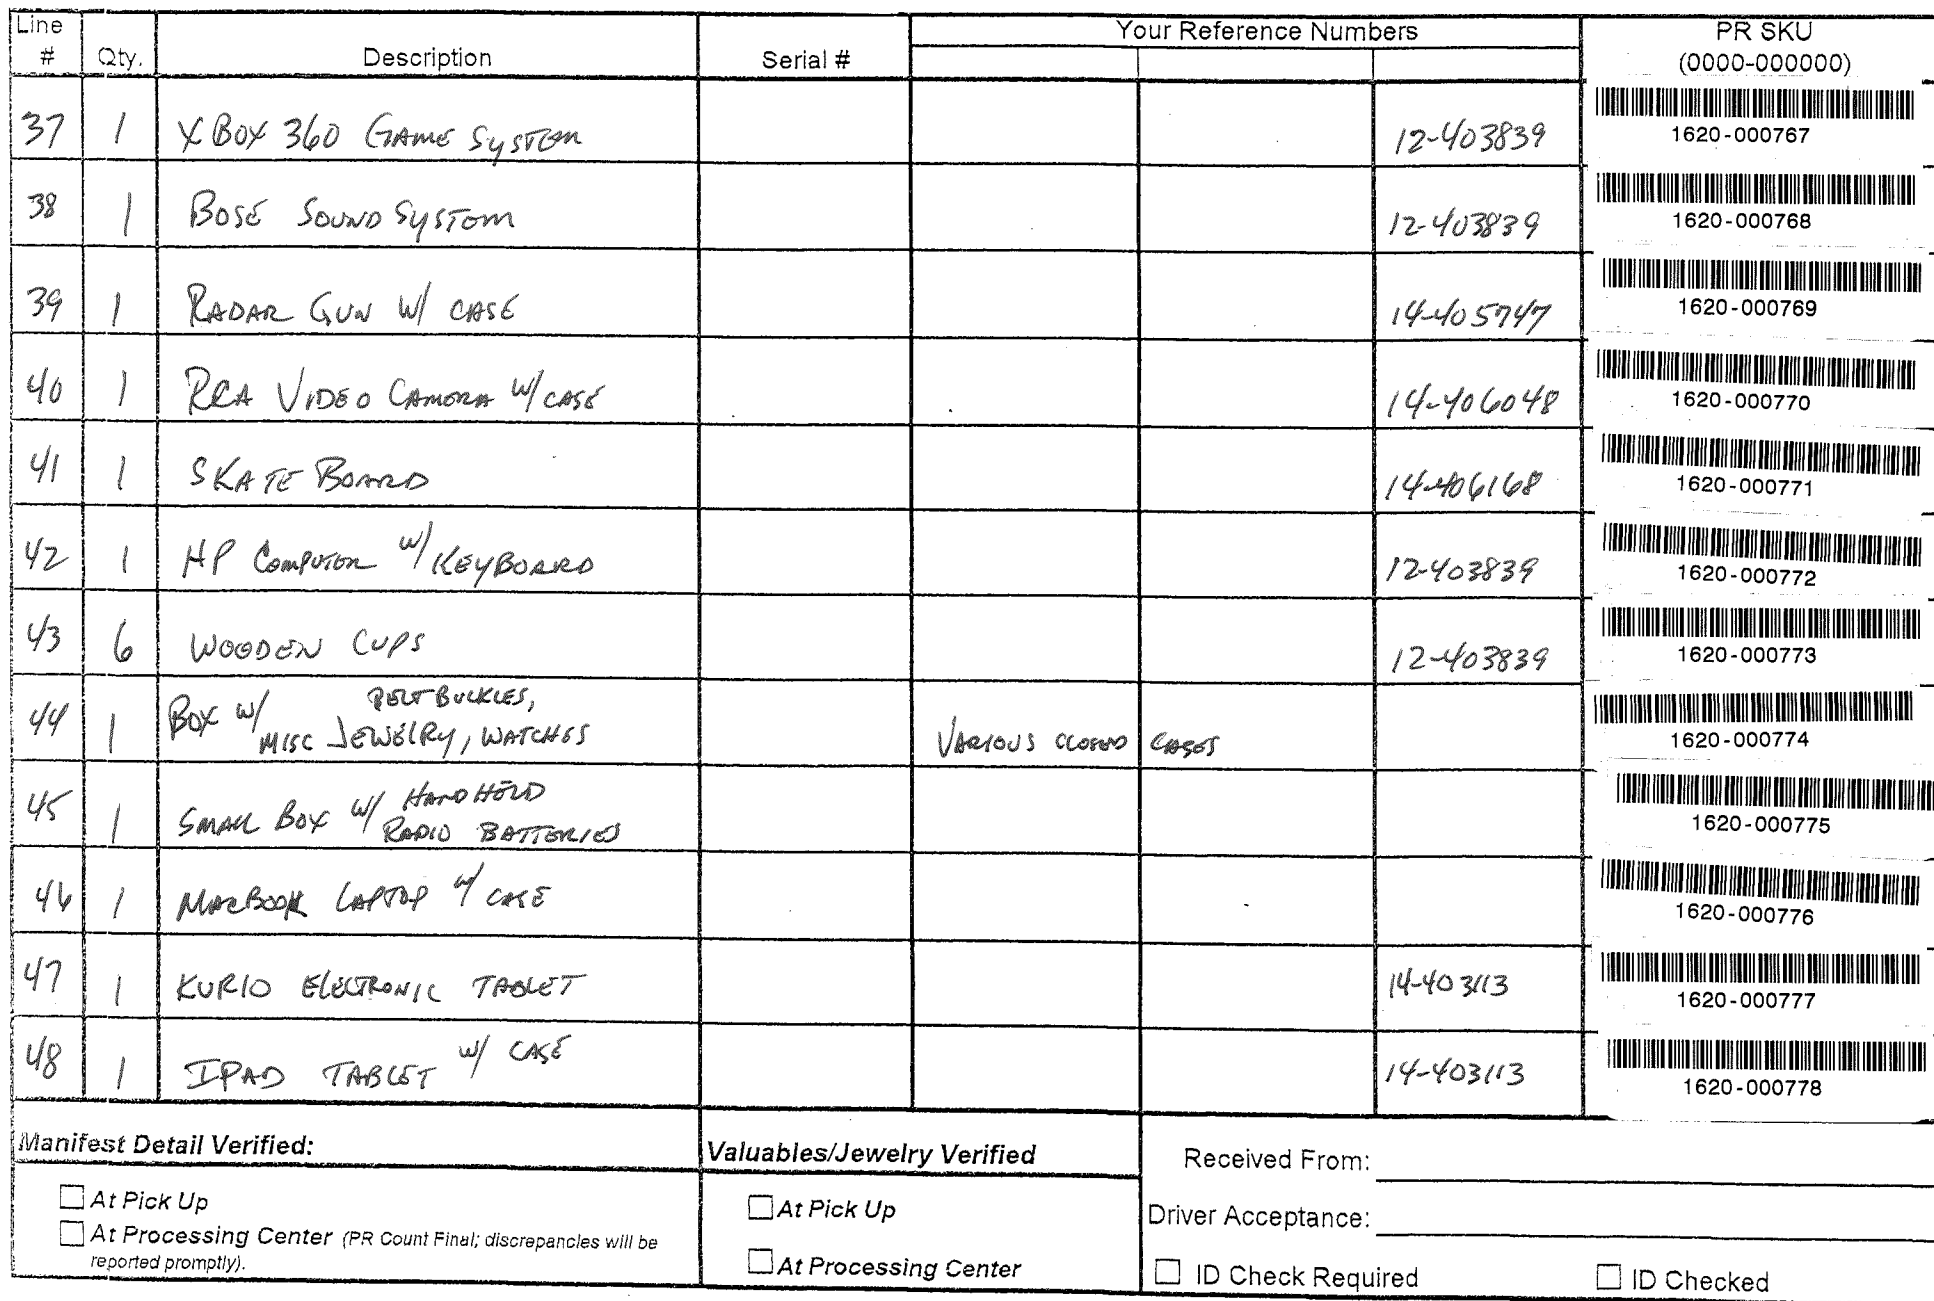 Line # Qty. Description Serial # Your Reference Numbers PR SKU (0000-000000)
37 1 XBOX 360 GAME SYSTEM 12-403839 1620-000767
38 1 BOSE SOUND SYSTEM 12-403839 1620-000768
39 1 RADAR GUN W/ CASE 14-405747 1620-000769
40 1 RCA VIDEO CAMERA W/ CASE 14-406048 1620-000770
41 1 SKATE BOARD 14-406168 1620-000771
42 1 HP COMPUTER W/ KEYBOARD 12-403839 1620-000772
43 6 WOODEN CUPS 12-403839 1620-000773
44 1 BOX W/ BELT BUCKLES, MISC JEWELRY, WATCHES VARIOUS CLOSED CASES 1620-000774
45 1 SMALL BOX W/ HANDHELD RADIO BATTERIES 1620-000775
46 1 MACBOOK LAPTOP W/ CASE 1620-000776
47 1 KURIO ELECTRONIC TABLET 14-403113 1620-000777
48 1 IPAD TABLET W/ CASE 14-403113 1620-000778
Manifest Detail Verified:
At Pick Up
At Processing Center (PR Count Final; discrepancies will be
reported promptly).
Valuables/Jewelry Verified
At Pick Up
At Processing Center
Received From:
Driver Acceptance:
ID Check Required ID Checked